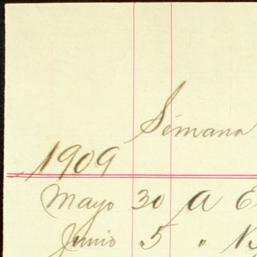 Semana
1909
Mayo 30 A E
Junio 5 "